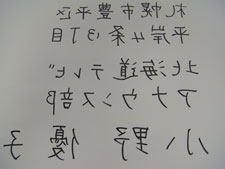 札幌市豊平区
平岸4条13丁目
北海道テレビ
アナウンス部
小野優子